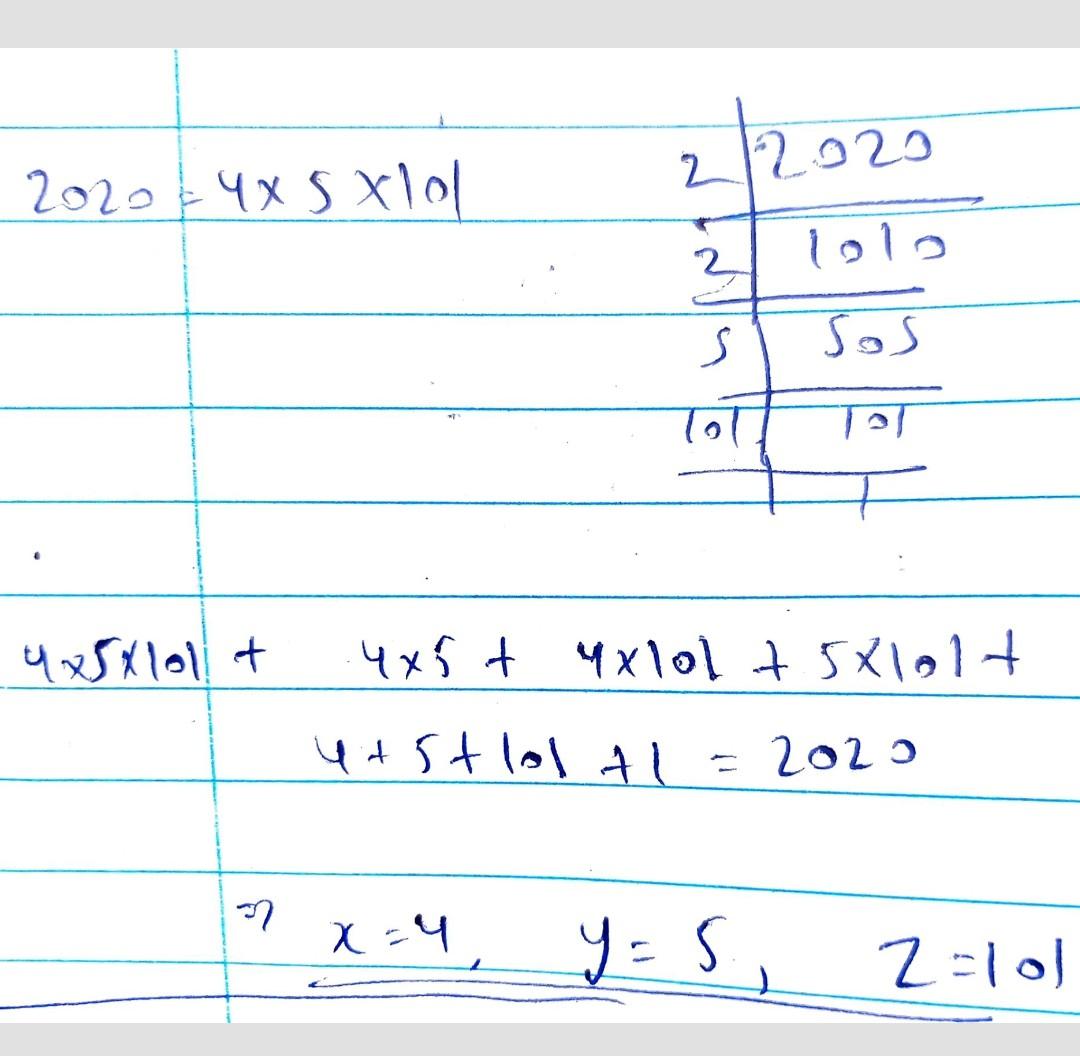 2020 = 4 x 5 x 101
2 | 2020
2 | 1010
5 | 505
101 | 101
1
4x5x101 + 4x5 + 4x101 + 5x101 +
4 + 5 + 101 + 1 = 2020
⇒ x = 4, y = 5, z = 101